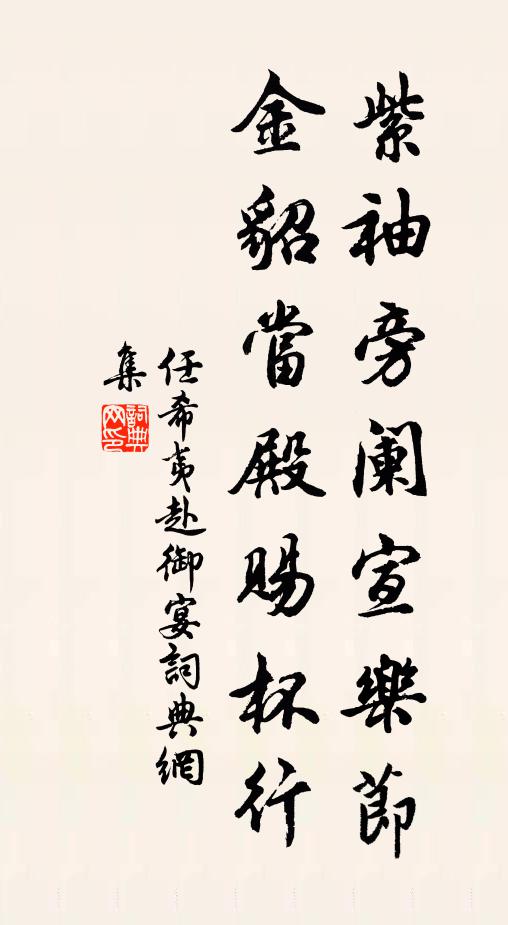 紫袖旁阑宣樂節
金貂當殿賜杯行
任希夷赴御宴詞典網
集
詞典
网印